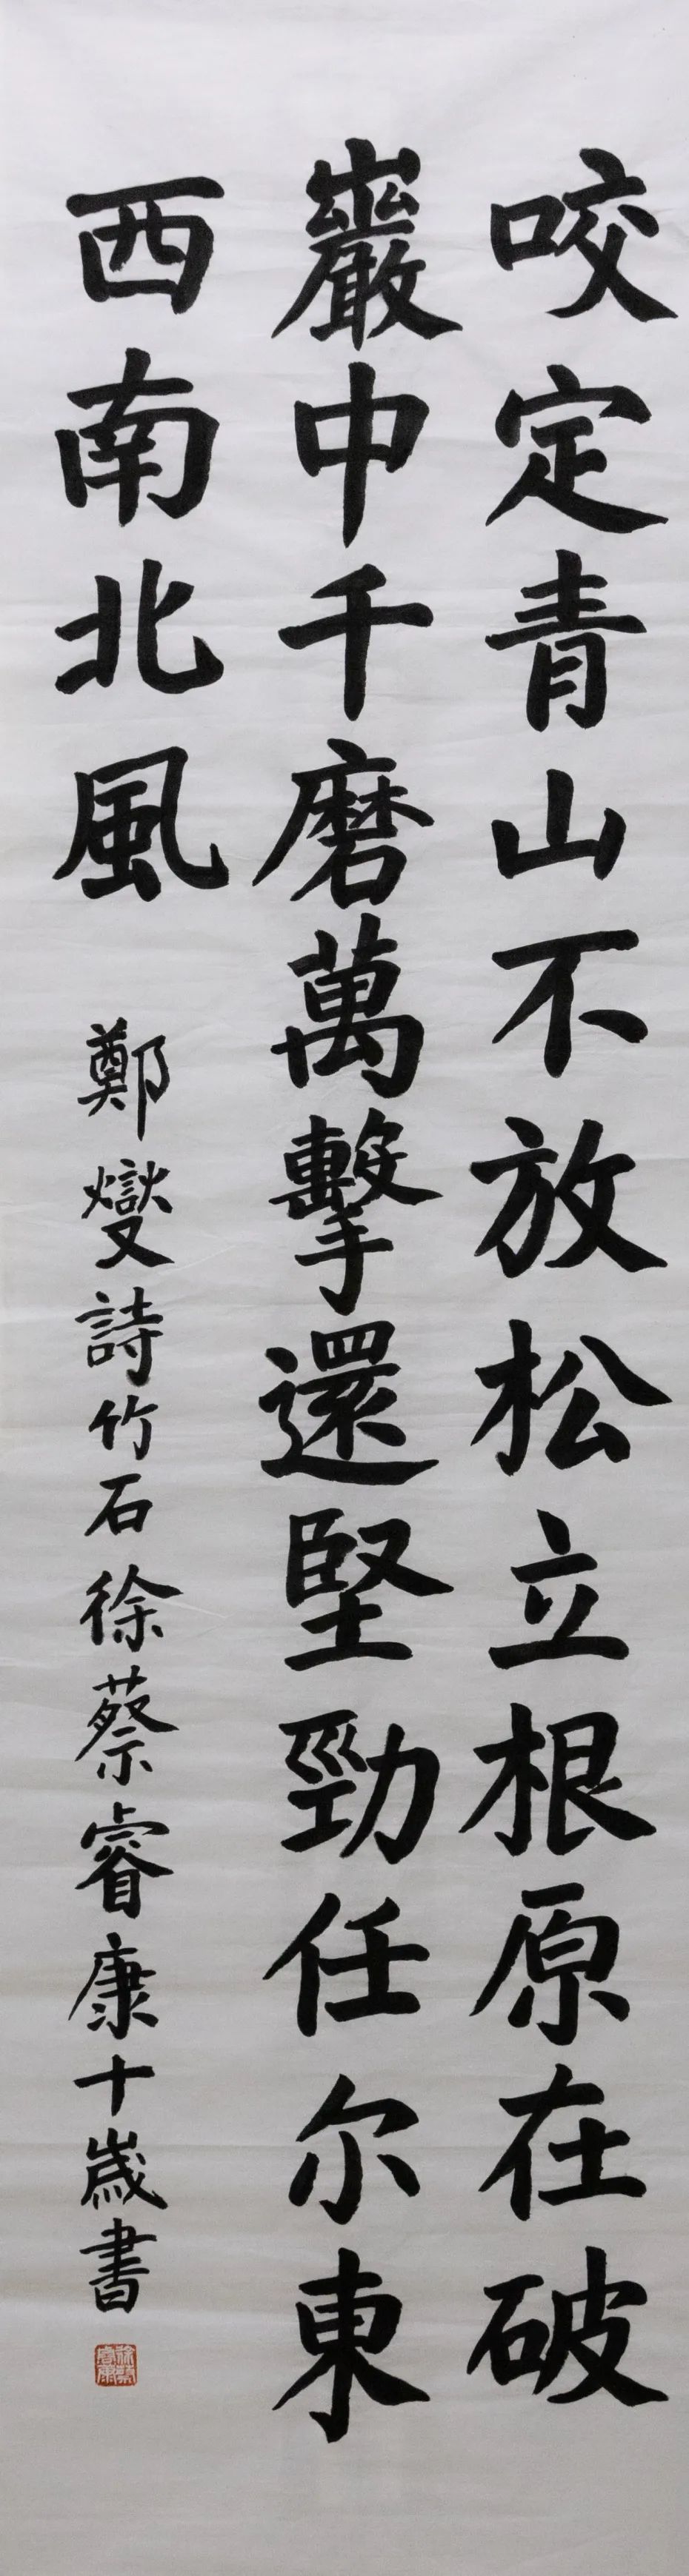 咬定青山不放松立根原在破
巖中千磨萬擊還堅勁任尔東
西南北風
鄭燮詩竹石徐蔡睿康十歲書
徐蔡睿康